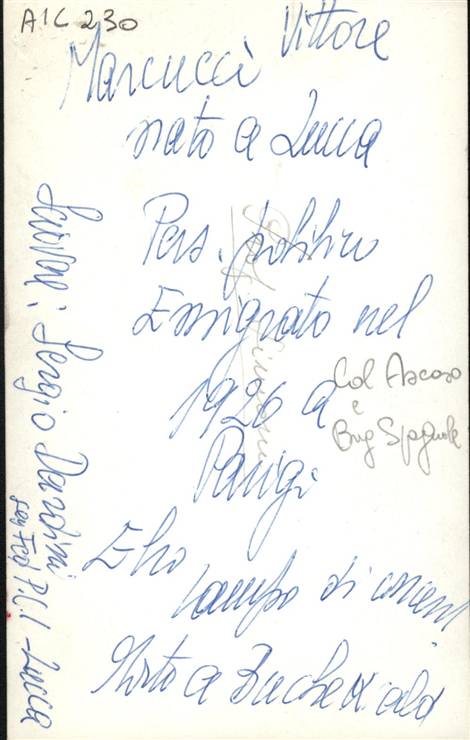 AIC 230
Marcucci Vittore
nato a Lucca
Pers. politico
Emigrato nel
1926 a
Parigi
Col Ascaso
e
Brig Spagnole
campo di concent.
Morto a Buchenwald
Scrivere: Sergio Dardini
seg Fed P.C.I - Lucca